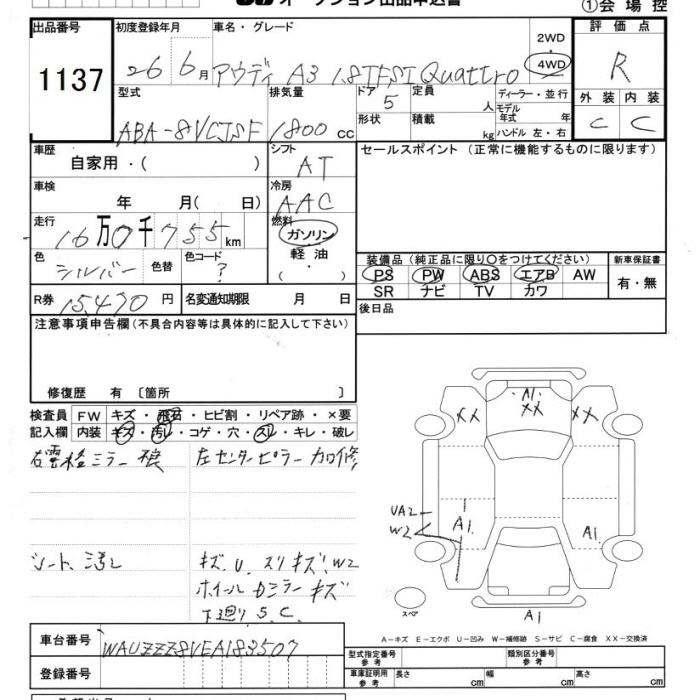 オークション出品申込書 ①会場控
出品番号 1137
初度登録年月 26年 6月
車名・グレード アウディ A3 1.8TFSI Quattro
2WD
4WD
評価点 R
外装 内装
C C
型式 ABA-8VCJSF
排気量 1800 cc
ドア 5
形状
定員 人
積載 kg
ディーラー・並行
モデル年式 年
ハンドル 左・右
車歴 自家用・( )
シフト AT
セールスポイント (正常に機能するものに限ります)
車検 年 月( 日)
冷房 AAC
走行 16万0千755km
燃料 ガソリン・軽油
( )
色 シルバー 色替 色コード ?
装備品 (純正品に限り○をつけてください) 新車保証書
PS PW ABS エアB AW 有・無
SR ナビ TV カワ
R券 15,470円 名変通知期限 月 日
後日品
注意事項申告欄 (不具合内容等は具体的に記入して下さい)
修復歴 有 〔箇所 〕
検査員 FW キズ・飛石・ヒビ割・リペア跡・×要
記入欄 内装 キズ・汚レ・コゲ・穴・スレ・キレ・破レ
左センターピラー カロ修
シート
キズ、U、スリキズ、W2
ホイール カミラー キズ
下廻り S、C
A1
XX XX XX
UA2
W2
A1 A1
スペア
A1
A-キズ E-エクボ U-凹み W-補修跡 S-サビ C-腐食 XX-交換済
車台番号 WAUZZZ8VEA183507
型式指定番号 参考 類別区分番号 参考
登録番号
車庫証明用 参考 長さ cm 幅 cm 高さ cm